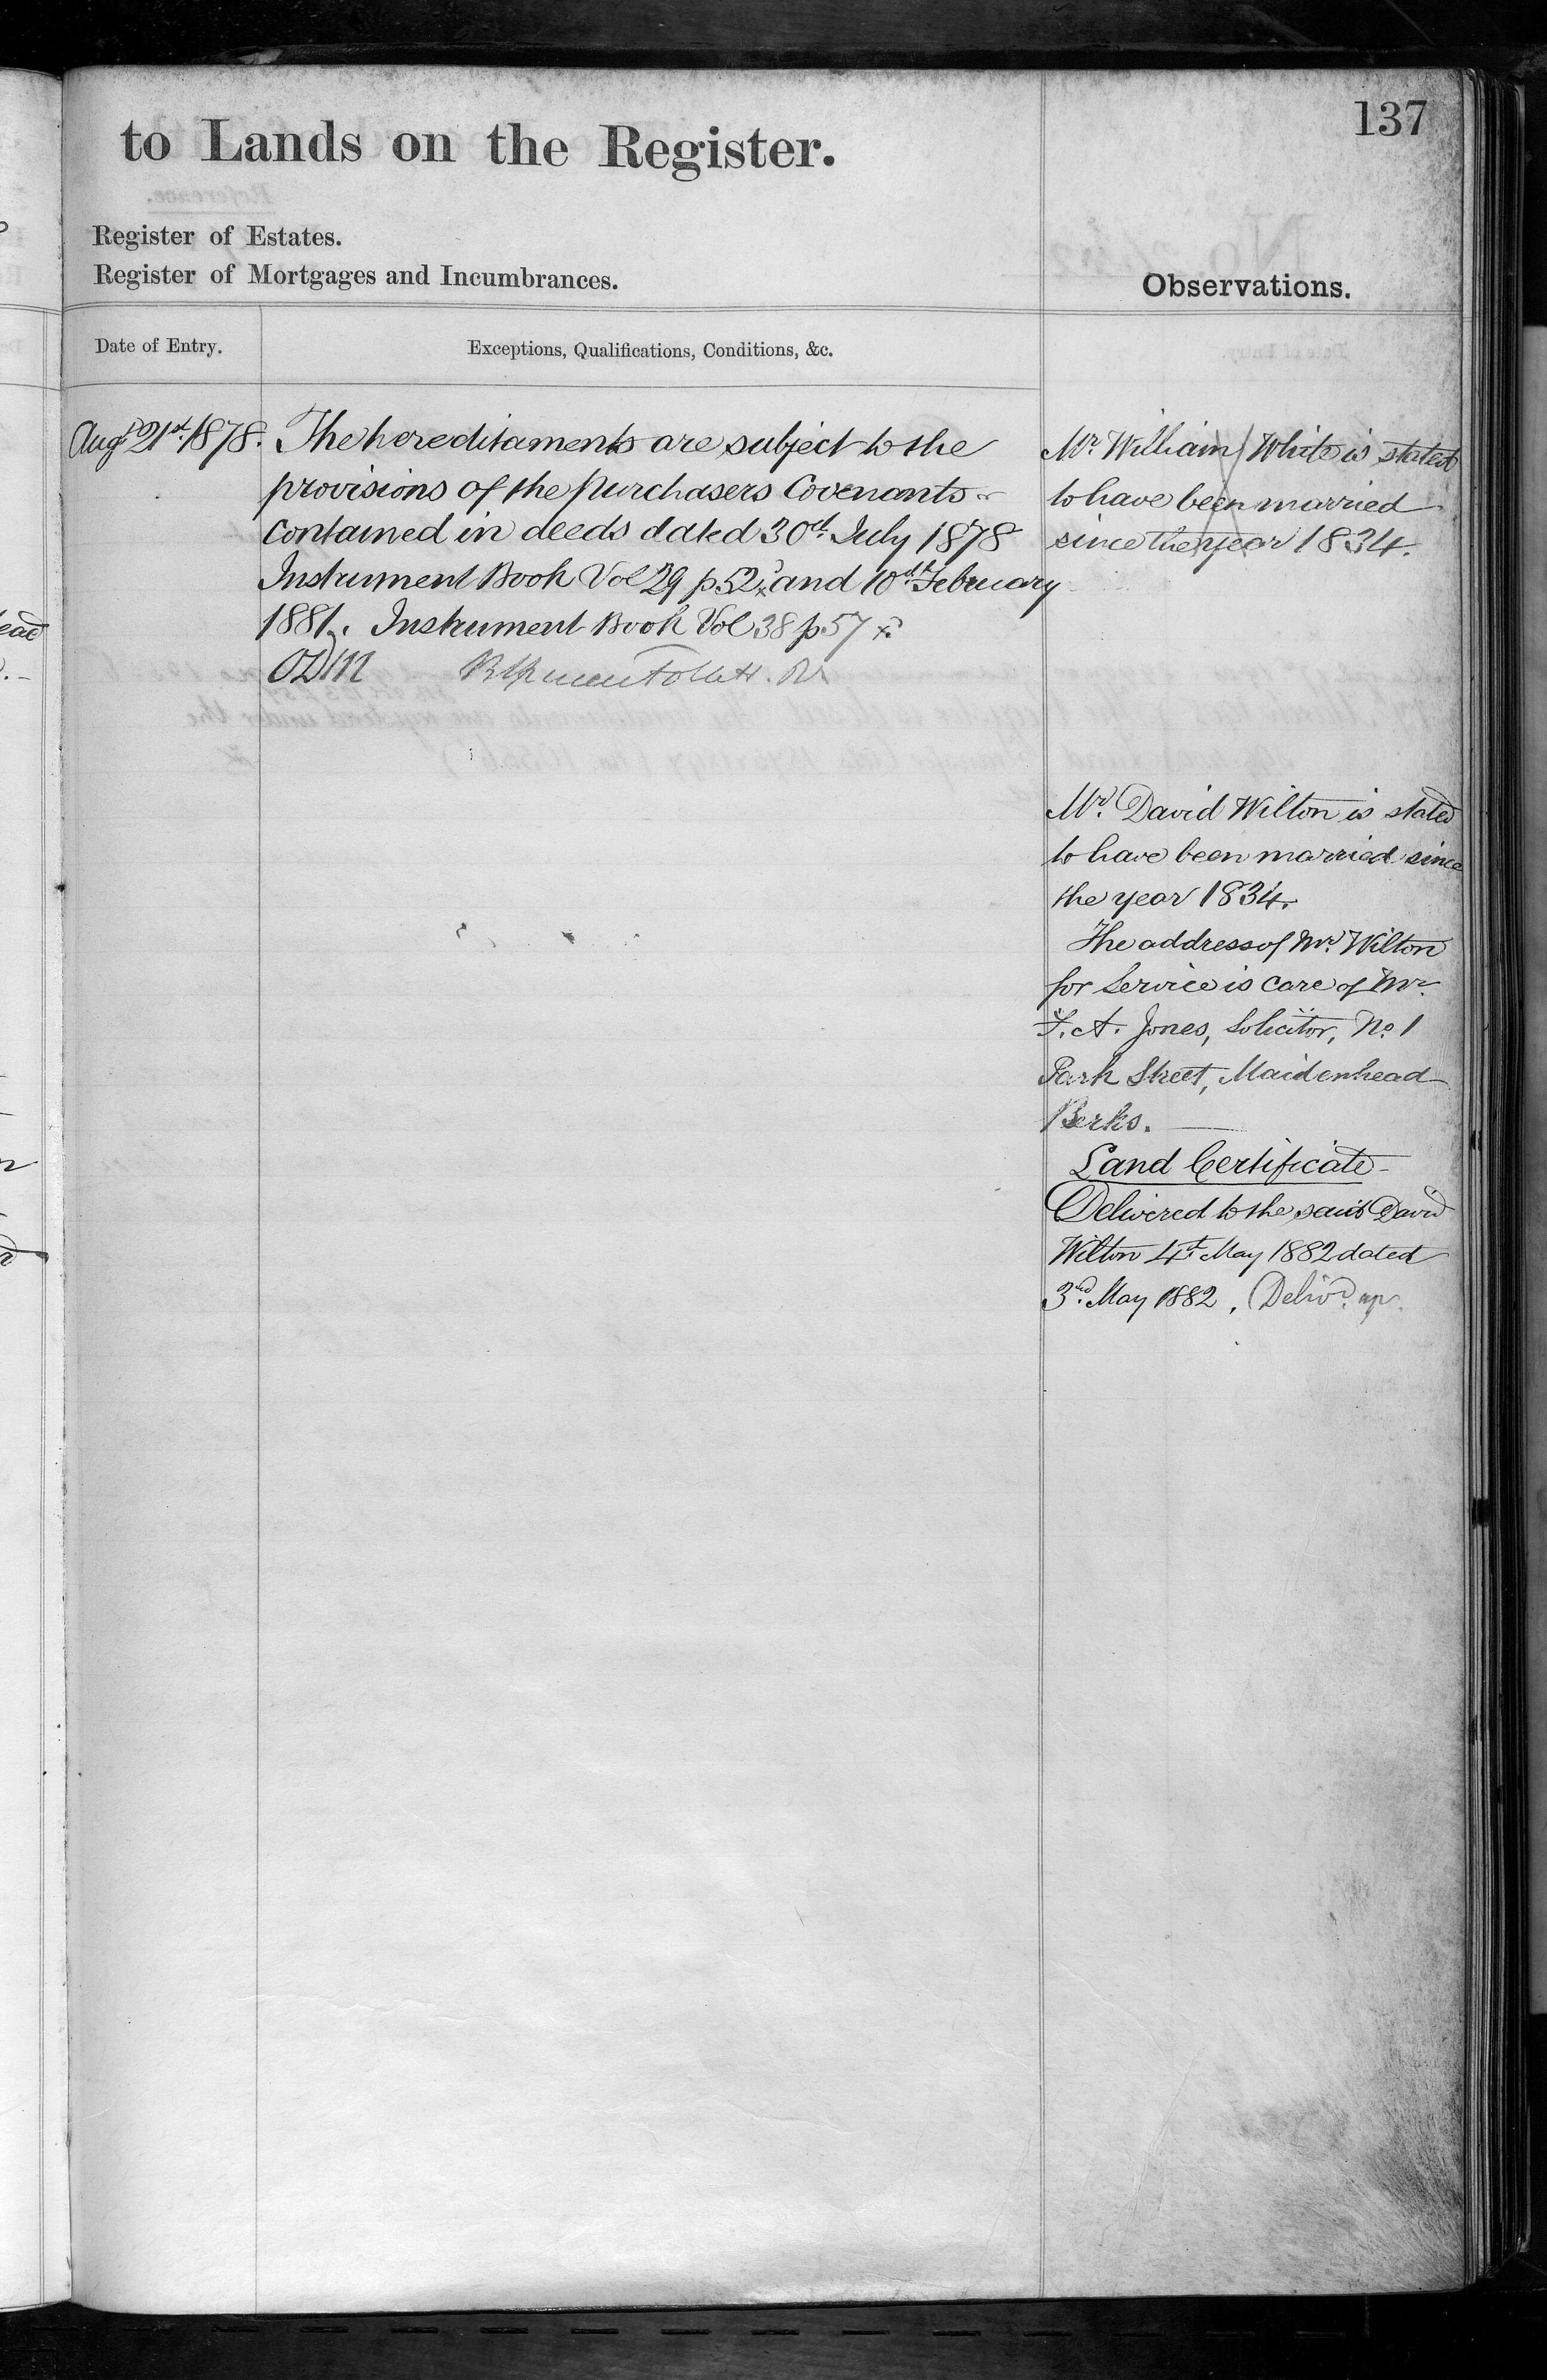 137
to Lands on the Register.
Register of Estates.
Register of Mortgages and Incumbrances.
Observations.
Date of Entry.
Exceptions, Qualifications, Conditions, &c.
Augt 21st 1878.
The hereditaments are subject to the
provisions of the purchasers Covenants
contained in deeds dated 30th July 1878
Instrument Book Vol 29 p 52 and 10th February
1881. Instrument Book Vol 38 p 57
Mr William White is stated
to have been married
since the year 1834.
Mr. David Wilton is stated
to have been married since
the year 1834.
The address of Mr. Wilton
for Service is care of Mr.
F. A. Jones, Solicitor, No. 1
Park Street, Maidenhead
Berks.
Land Certificate
Delivered to the said David
Wilton 4th May 1882 dated
3rd May 1882. Deliv'd. up.